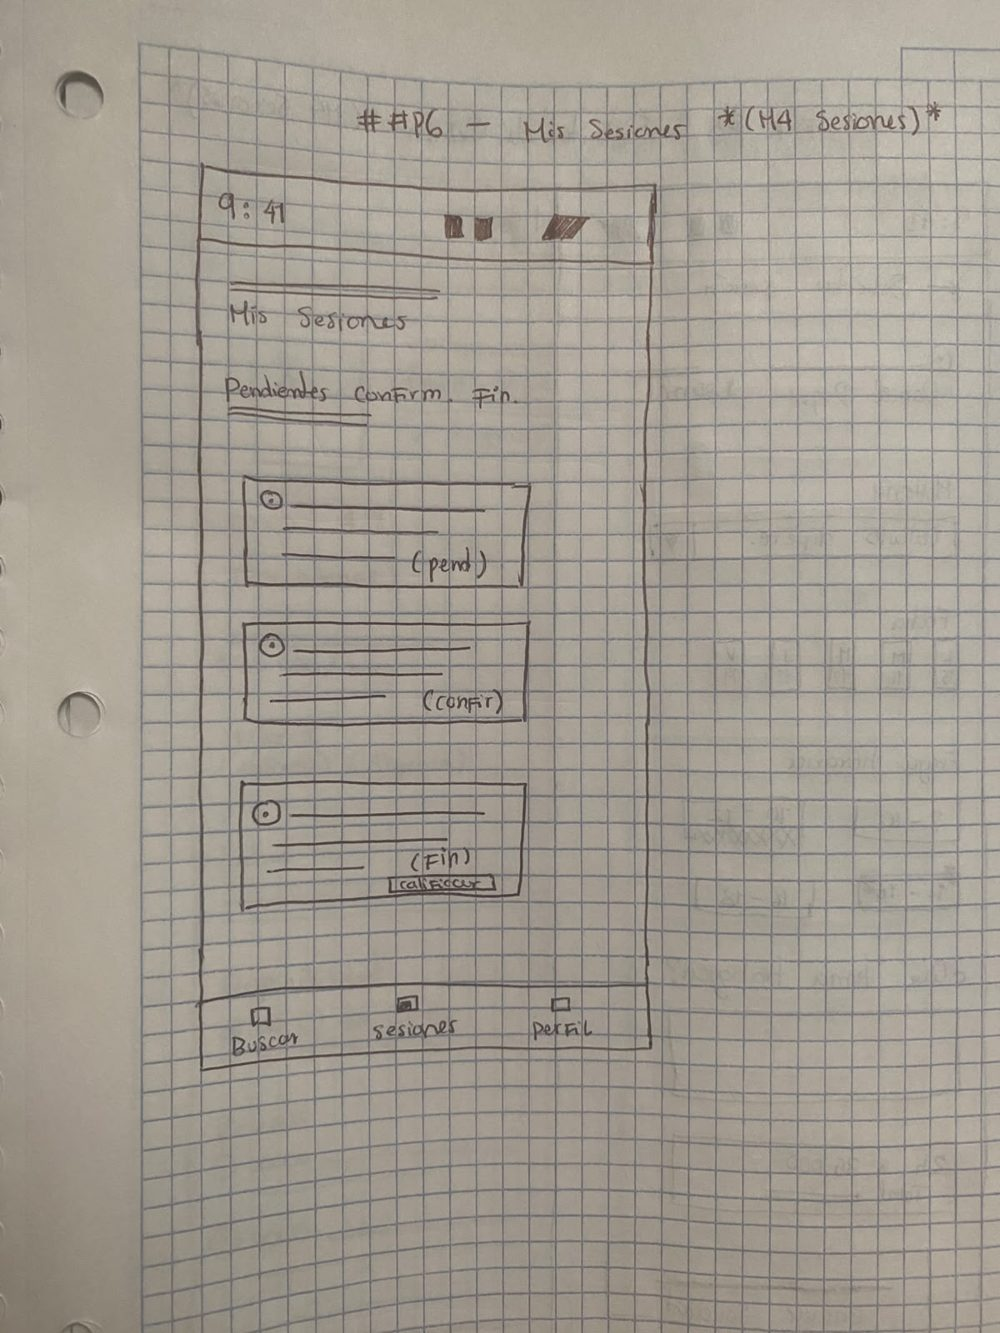 ##P6 - Mis Sesiones *(M4 Sesiones)*
9:41
Mis Sesiones
Pendientes Confirm. Fin.
(pend)
(confir)
(Fin)
calificar
Buscar sesiones perfil